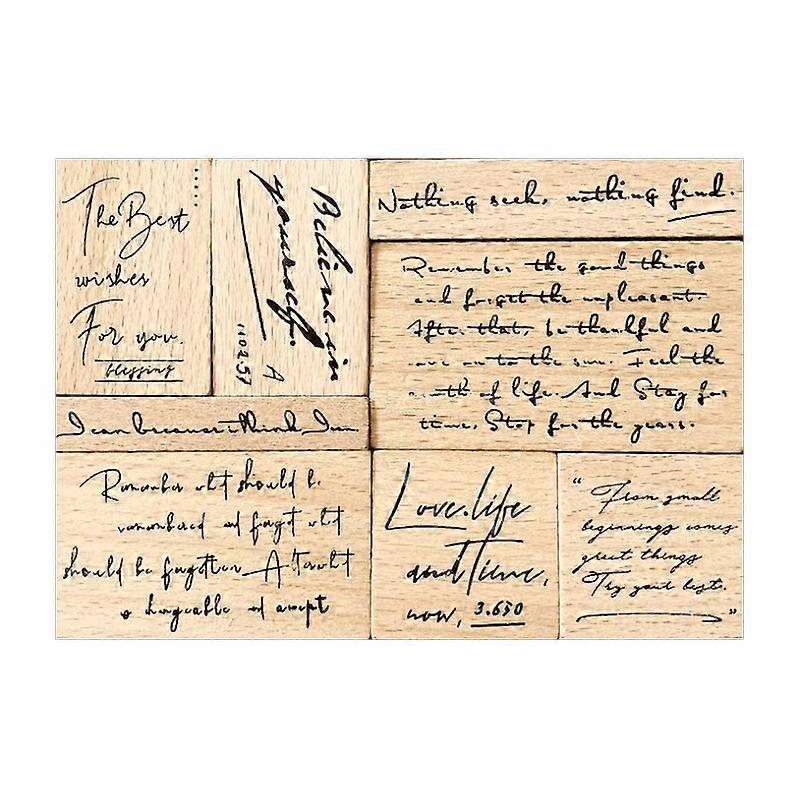 The Best
wishes
For you.
blessing
Believe in
yourself.
A
1102.57
Nothing seek, nothing find.
Remember the good things
and forget the unpleasant.
After that, be thankful and
to the sun. Feel the
of life. And Stay for
time, Stop for the years.
I can because i think I can.
Remember what should be
remembered and forget what
should be forgotten. Alter what
changeable and accept
Love.life
and Time,
now, 3.650
“ From small
beginnings comes
great things
Try your best. ”